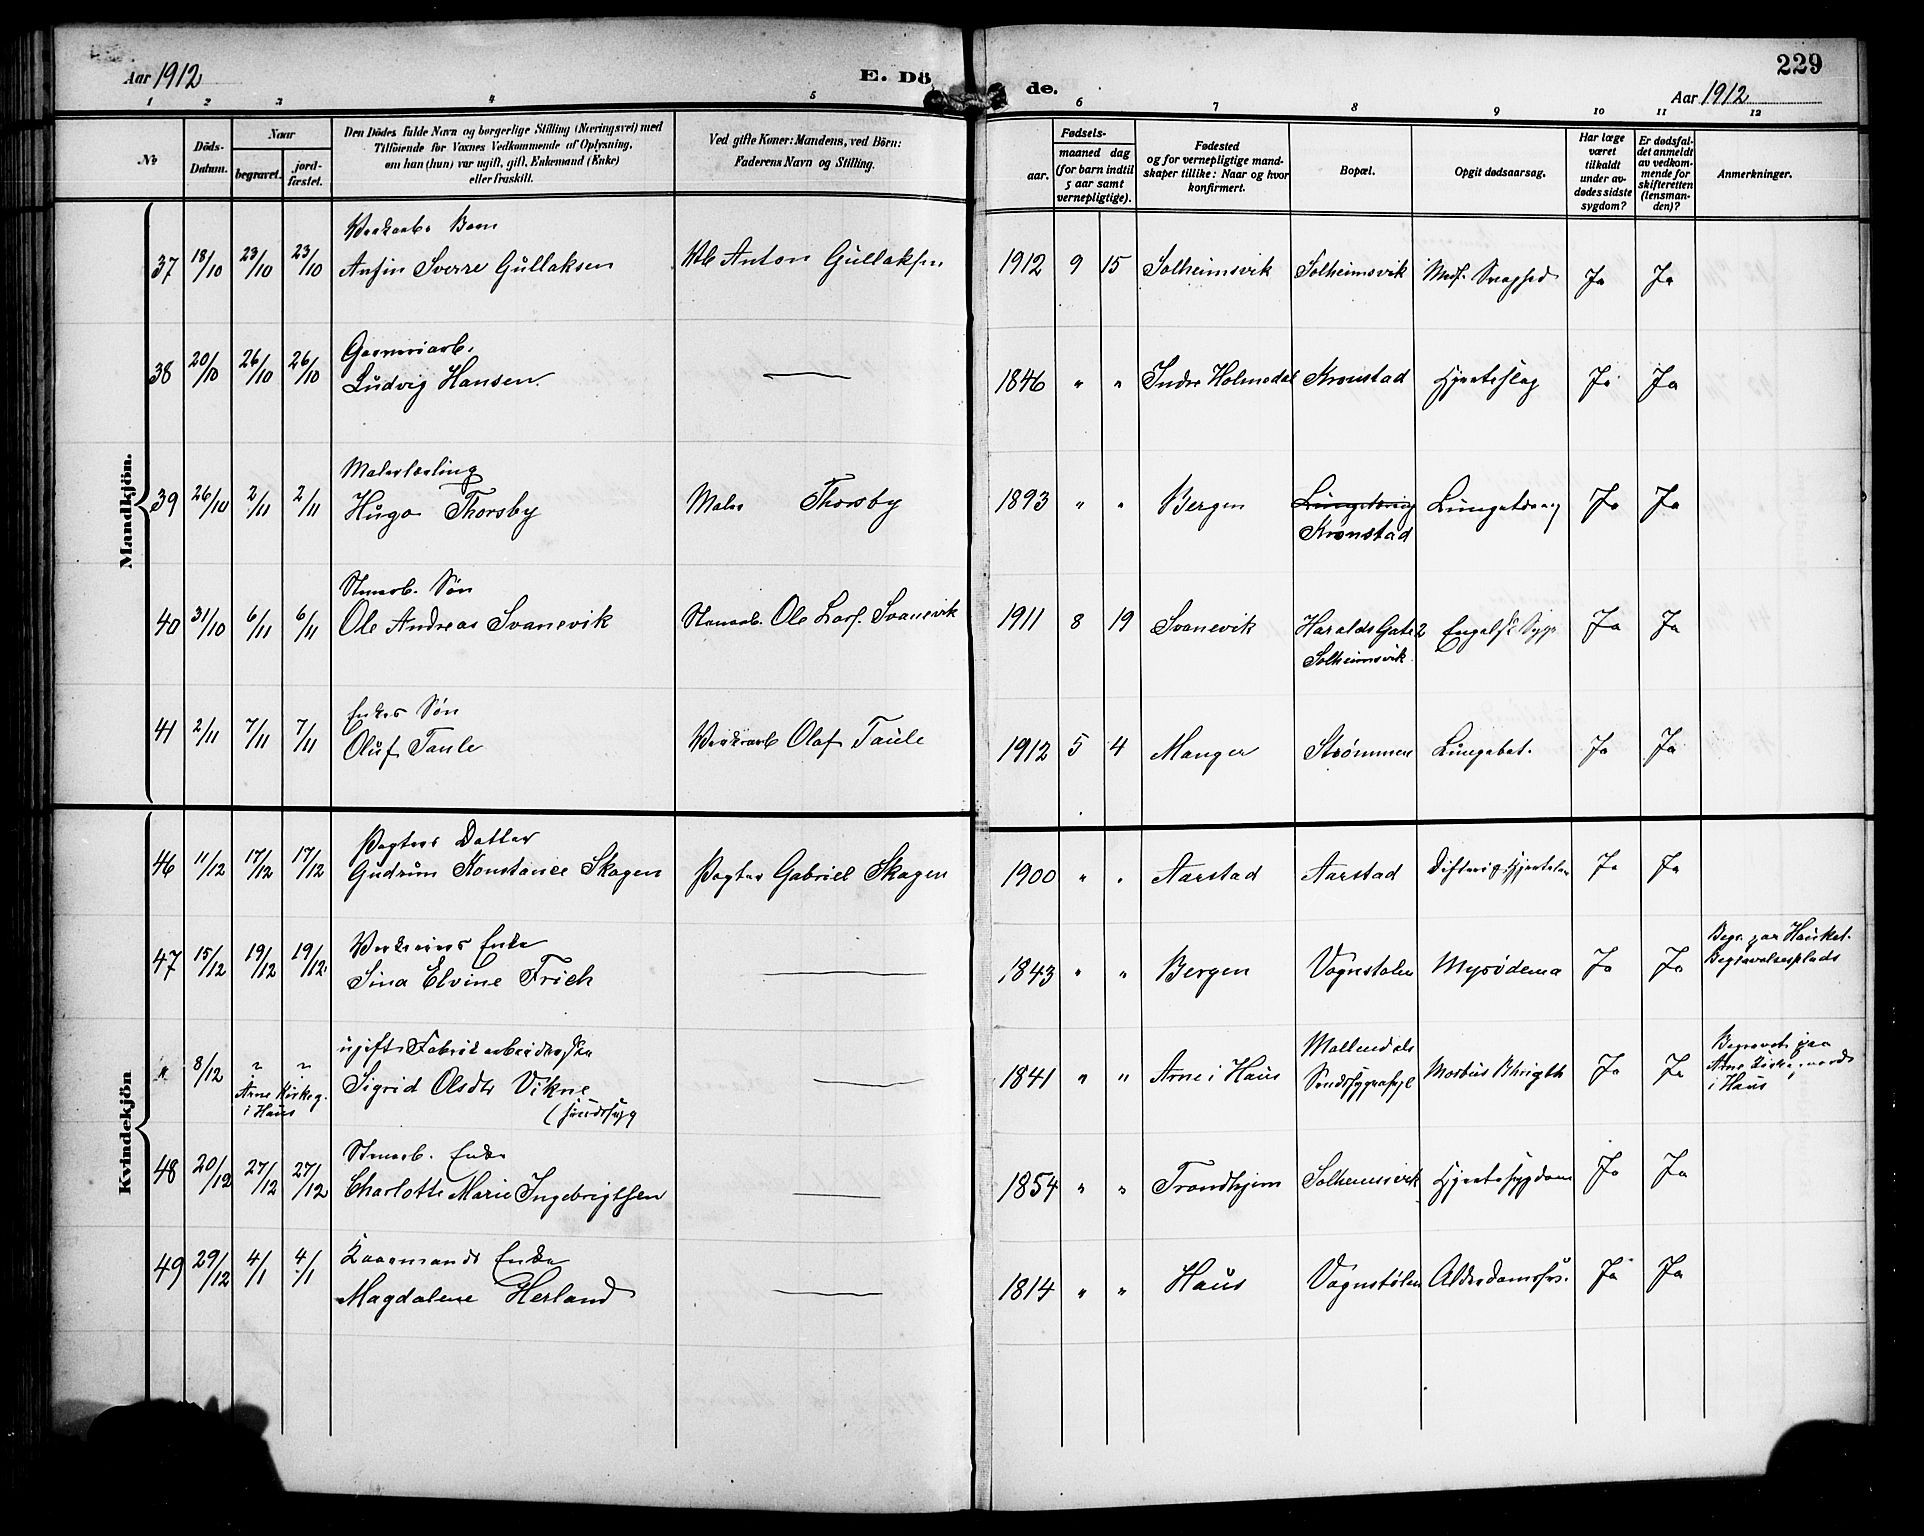 Aar 1912
E. Dö de.
229
Aar 1912
1 2 3 4 5 6 7 8 9 10 11 12
No
Döds-
Datum.
Naar
begravet.
jord-
fæstet.
Den Dödes fulde Navn og borgerlige Stilling (Næringsvei) med
Tilföiende for Voxnes Vedkommende af Oplysning,
om han (hun) var ugift, gift, Enkemand (Enke)
eller fraskilt.
Ved gifte Koner: Mandens, ved Börn:
Faderens Navn og Stilling.
Fødsels-
aar.
maaned dag
(for barn indtil
5 aar samt
vernepligtige).
Fødested
og for vernepligtige mand-
skaper tillike: Naar og hvor
konfirmert.
Bopæl.
Opgit dødsaarsag.
Har læge
været
tilkaldt
under av-
dødes sidste
sygdom?
Er dødsfal-
det anmeldt
av vedkom-
mende for
skifteretten
(lensman-
den)?
Anmerkninger.
Mandkjön.
37 18/10 23/10 23/10
Barn
Anfin Sverre Gullaksen
Anton Gullaksen
1912 9 15 Solheimsvik Solheimsvik Medf. Svaghed Ja Ja
38 20/10 26/10 26/10
Garveriarb.
Ludvig Hansen.
1846 " " Indre Holmedal Kronstad Hjerteslag Ja Ja
39 26/10 2/11 2/11
Malerlærling
Hugo Thorsby
Maler Thorsby
1893 " " Bergen
Kronstad
Ja Ja
40 31/10 6/11 6/11
Stenarb. Søn
Ole Andreas Svanevik
Stenarb. Ole Lars. Svanevik
1911 8 19 Svanevik Haralds Gate 2
Solheimsvik
Engelsk Syge Ja Ja
41 2/11 7/11 7/11
Enkes Søn
Oluf Taule
Olaf Taule
1912 5 4 Manger Strømmen Lungebet. Ja Ja
Kvindekjön
46 11/12 17/12 17/12
Pagters Datter
Gudrun Konstance Skagen
Pagter Gabriel Skagen
1900 " " Aarstad Aarstad Difteri Ja Ja
47 15/12 19/12 19/12
Enke
Sina Elvine Frich
1843 " " Bergen Vognstølen Myxødema Ja Ja
Begr. paa Hauket.
Begravelsesplads
" 8/12 ? ?
Arne Kirkeg.
i Haus
ugift Fabrikarbeiderske
Sigrid Olsdtr Vikne
(sindssyg
1841 " " Arne i Haus
Møllendals
Sindssygeasyl
Morbus Brigth Ja Ja
Begravet paa
Arne Kirkegaard
i Haus
48 20/12 27/12 27/12
Stenarb. Enke
Charlotte Marie Ingebrigtsen
1854 " " Trondhjem Solheimsvik Hjertesygdom Ja Ja
49 29/12 4/1 4/1
Kaarmands Enke
Magdalene Herland
1814 " " Haus Vognstølen Ja Ja